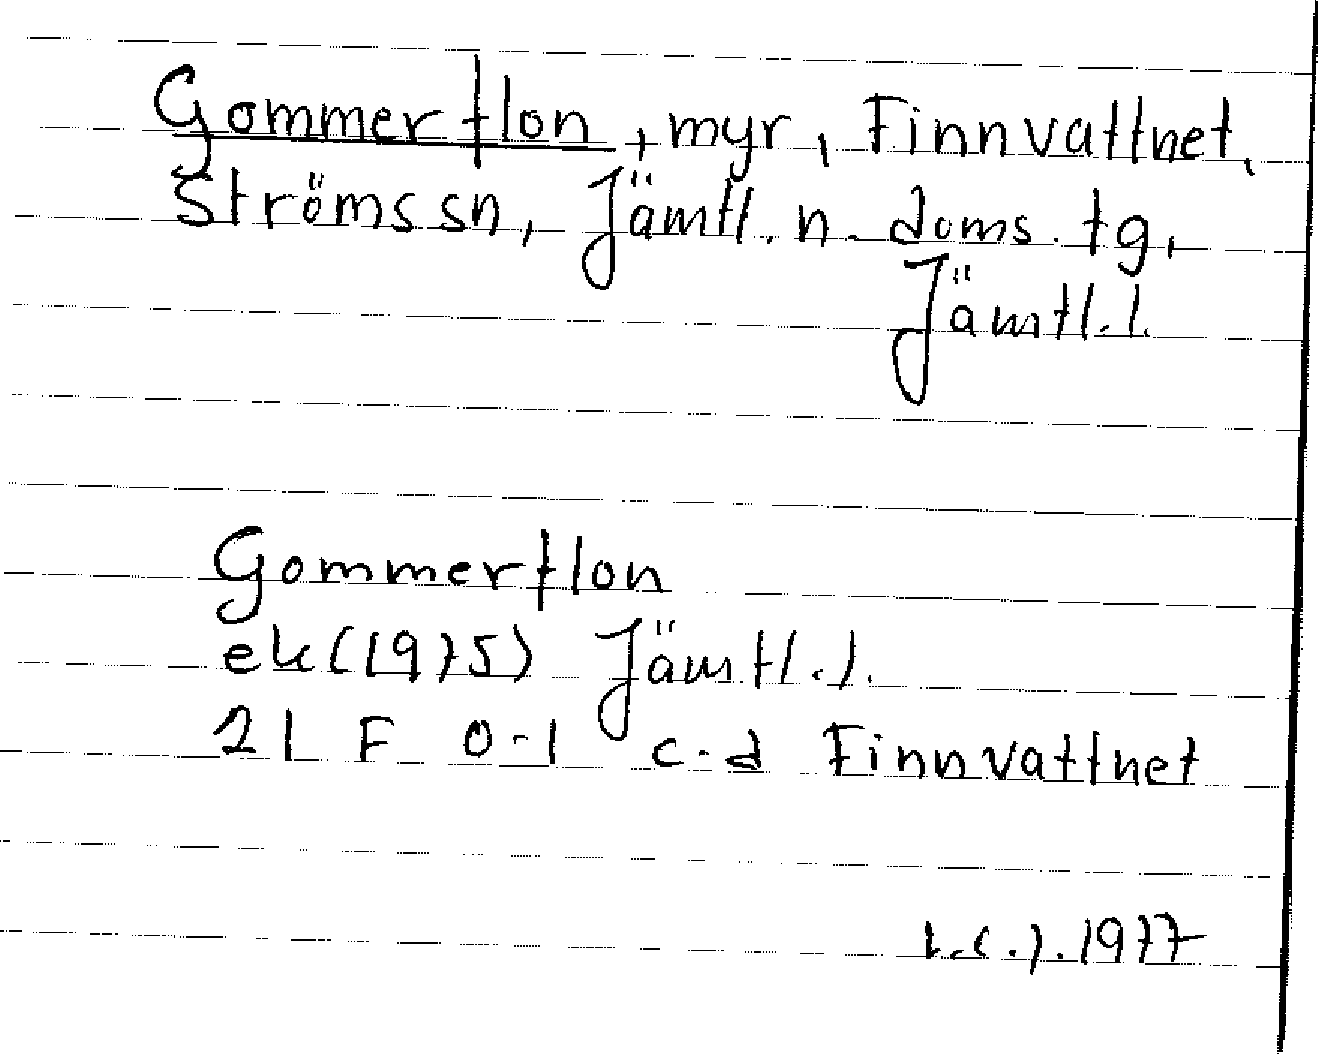 Gommerflon, myr, Finnvattnet,
Ströms sn, Jämtl. n. doms. tg,
Jämtl. l.
Gommerflon
ek (1975) Jämtl. l.
21 F 0-1 c-d Finnvattnet
1977